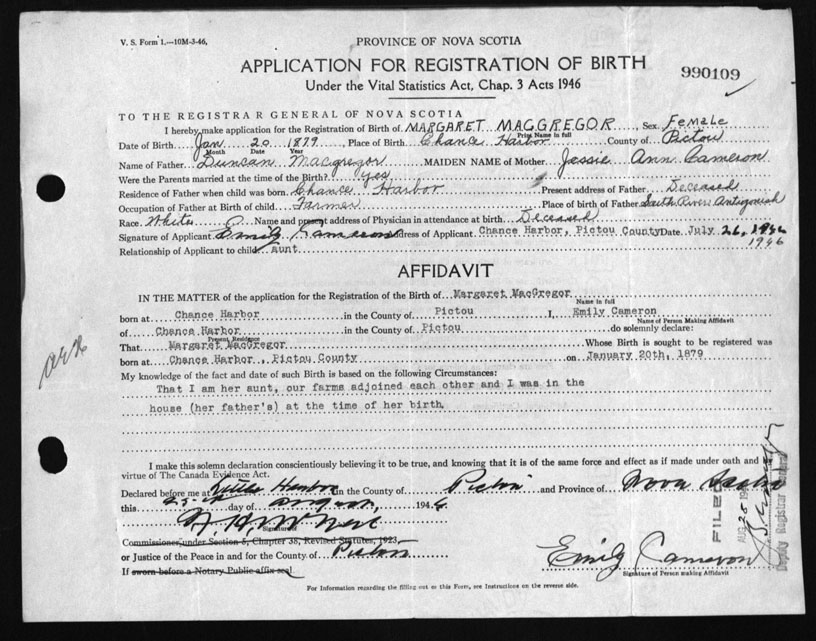 V. S. Form 1.—10M-3-46,
PROVINCE OF NOVA SCOTIA
APPLICATION FOR REGISTRATION OF BIRTH
990109
Under the Vital Statistics Act, Chap. 3 Acts 1946
TO THE REGISTRAR GENERAL OF NOVA SCOTIA
I hereby make application for the Registration of Birth of MARGARET MACGREGOR, Sex Female
Print Name in full
Date of Birth Jan 20 1879, Place of Birth Chance Harbor County of Pictou
Month Date Year
Name of Father Duncan Macgregor MAIDEN NAME of Mother Jessie Ann Cameron
Were the Parents married at the time of the Birth? yes
Residence of Father when child was born Chance Harbor Present address of Father Deceased
Occupation of Father at Birth of child Farmer Place of Birth of Father South River Antigonish
Race White Name and present address of Physician in attendance at birth Deceased
Signature of Applicant Emily Cameron Address of Applicant Chance Harbor, Pictou County Date July 26, 1946
1946
Relationship of Applicant to child aunt
AFFIDAVIT
IN THE MATTER of the application for the Registration of the Birth of Margaret MacGregor
Name in full
born at Chance Harbor in the County of Pictou I, Emily Cameron
Name of Person Making Affidavit
of Chance Harbor in the County of Pictou do solemnly declare:
Present Residence
That Margaret MacGregor Whose Birth is sought to be registered was
born at Chance Harbor , Pictou County on January 20th, 1879
My knowledge of the fact and date of such Birth is based on the following Circumstances:
That I am her aunt, our farms adjoined each other and I was in the
house (her father's) at the time of her birth.
I make this solemn declaration conscientiously believing it to be true, and knowing that it is of the same force and effect as if made under oath and by
virtue of The Canada Evidence Act.
Declared before me at Little Harbor in the County of Pictou and Province of Nova Scotia
this day of August, 1946
Signature of
Commissioner, under Section 5, Chapter 38, Revised Statutes, 1923,
or Justice of the Peace in and for the County of Pictou
If sworn before a Notary Public affix seal
Emily Cameron
Signature of Person making Affidavit
For Information regarding the filling out of this Form, see Instructions on the reverse side.
FILED
AUG 28 194
Deputy Registrar General